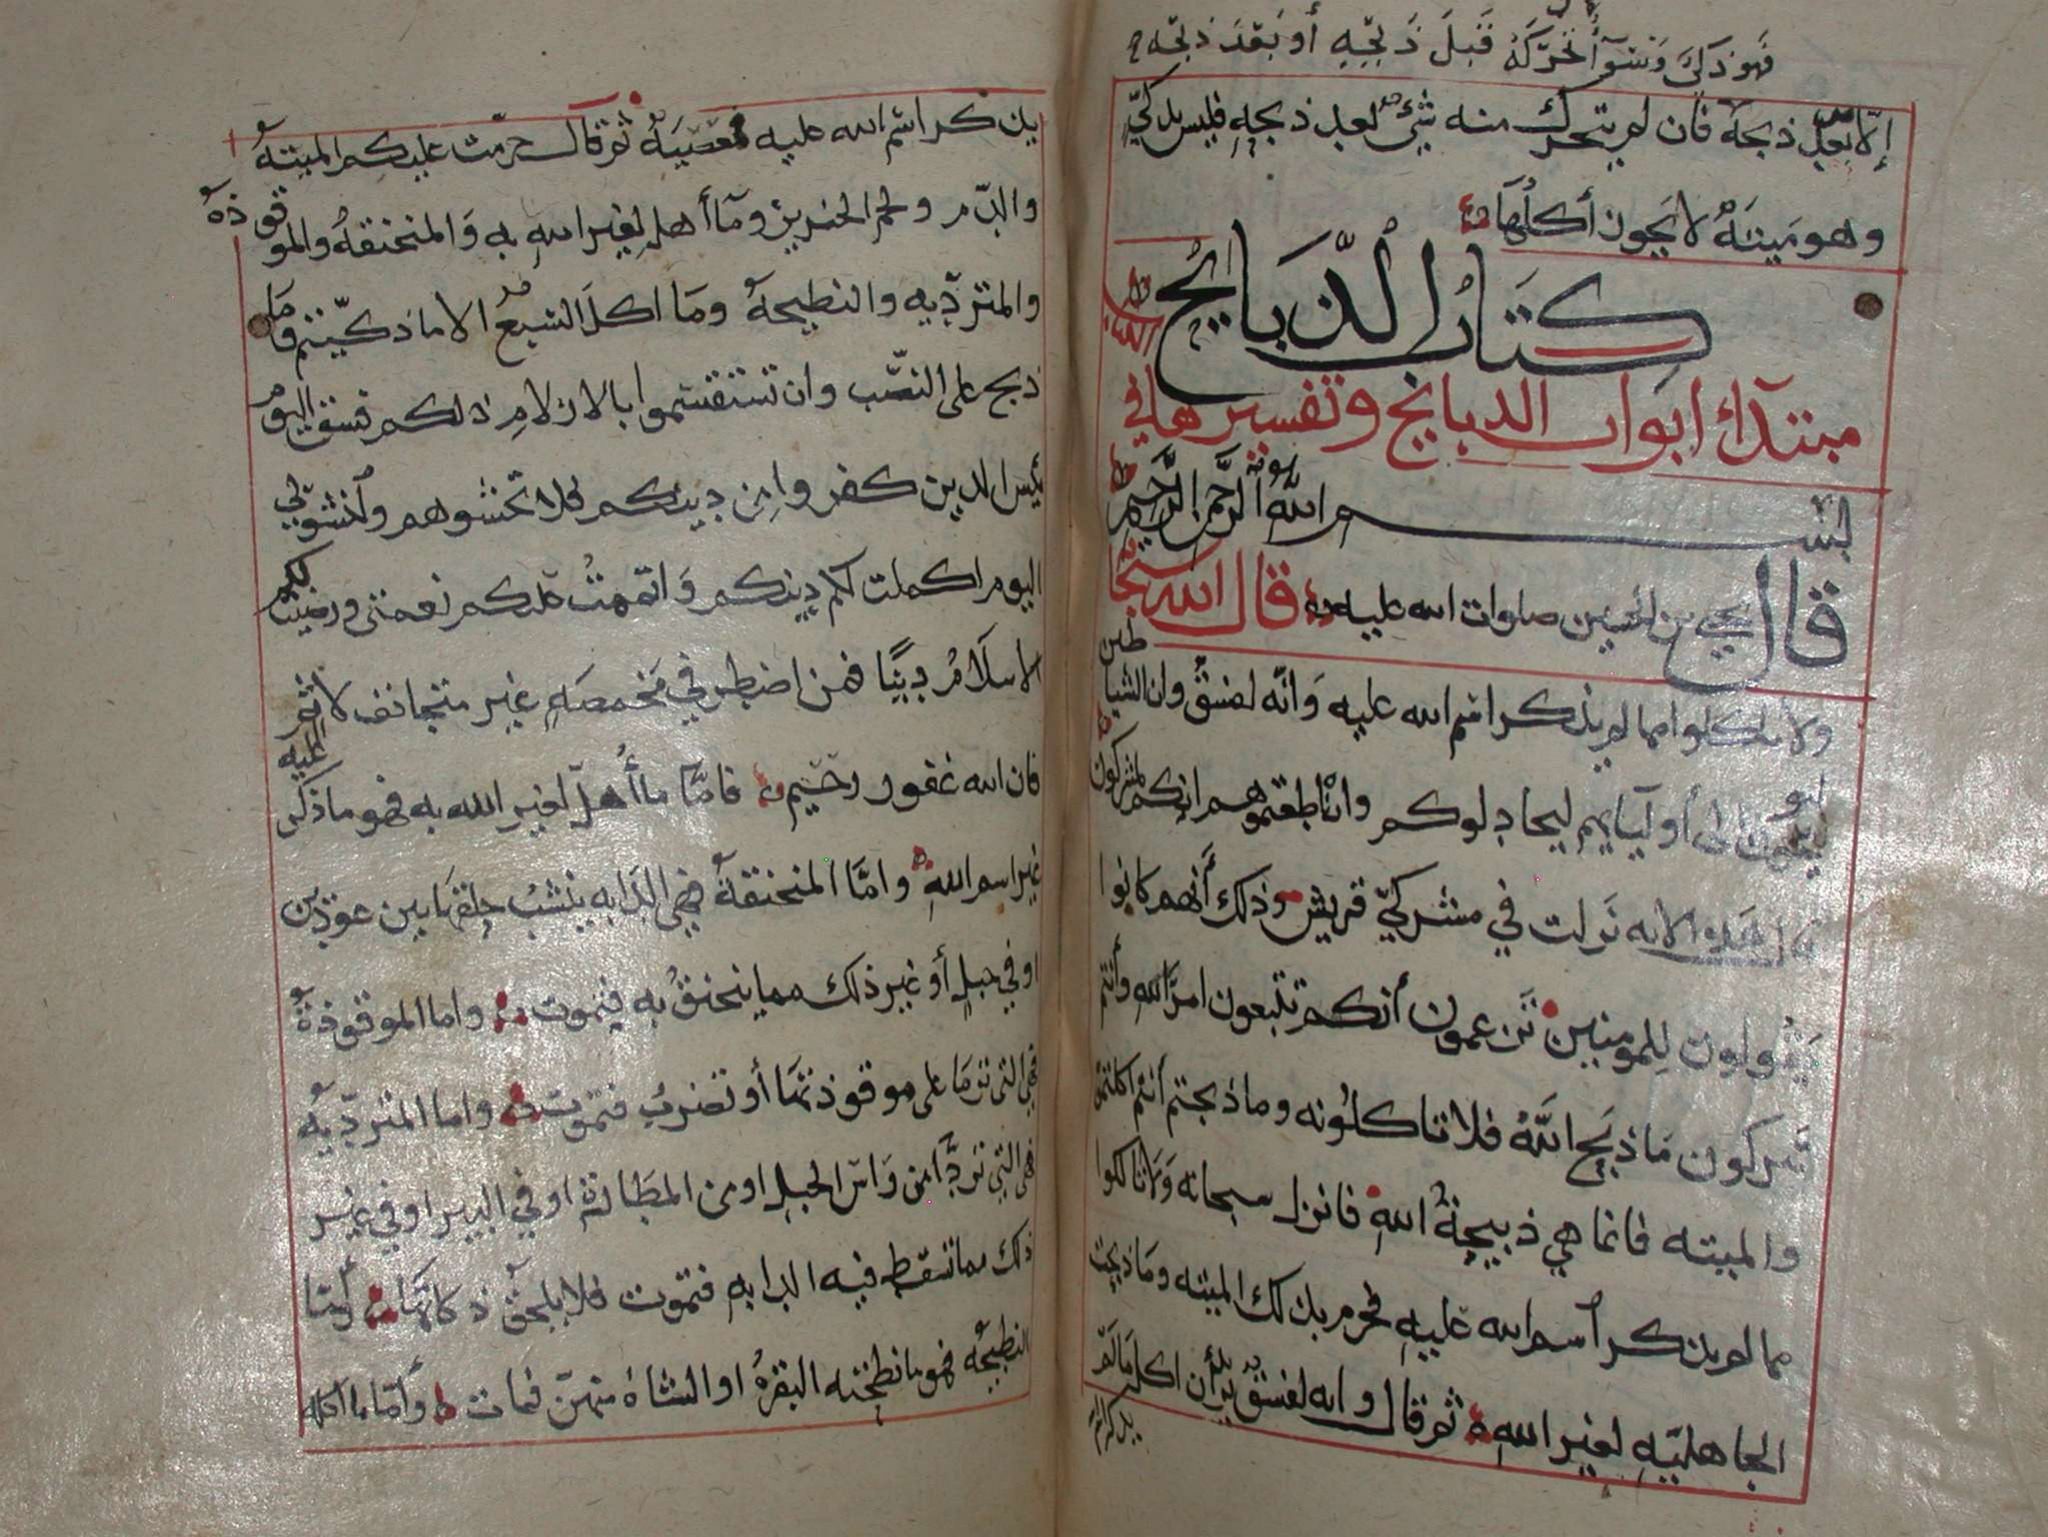 فهو ذكي وسوآء تحركه قبل ذبحه أو بعد ذبحه
إلا بعد ذبحه فان لم يتحرك منه شيء بعد ذبحه فليس بذكيّ
وهو ميتة لا يجوز أكلها
كتاب الذبايح
مبتدأ ابواب الذبايح وتفسيرها في
بسم الله الرحمن الرحيم
قال يحيى بن الحسين صلوات الله عليه قال الله سبحانه
ولا تاكلوا مما لم يذكر اسم الله عليه وانه لفسق وان الشياطين
ليوحون الى أوليآيهم ليجادلوكم وان اطعتموهم انكم لمشركون
هذه الايه نزلت في مشركي قريش وذلك أنهم كانوا
يقولون للمومنين تزعمون أنكم تتبعون امر الله وأنتم
تتركون ما ذبح الله فلا تاكلونه وما ذبحتم أنتم اكلتموه
والميته فانما هي ذبيحة الله فانزل سبحانه ولا تاكلوا
مما لم يذكر اسم الله عليه فحرم بذلك الميته وما ذبحت
الجاهليه لغير الله ثم قال وانه لفسق يريد أن اكل ما لم
يذكر اسم الله عليه معصية ثم قال حرمت عليكم الميتة
والدم ولحم الخنزير ومآ أهل لغير الله به والمنخنقة والموقوذة
والمتردّيه والنطيحة وما اكل السبع الا ما ذكيتم وما
ذبح على النصب وان تستقسموا بالازلام ذلكم فسق اليوم
يئس الذين كفروا من دينكم فلا تخشوهم واخشوني
اليوم اكملت لكم دينكم واتممت عليكم نعمتي ورضيت لكم
الاسلام دينًا فمن اضطر في مخمصة غير متجانف لاثم
فان الله غفور رحيم فامّا ما أهل لغير الله به فهو ما ذكر عليه
غير اسم الله وامّا المنخنقة فهي الدابه ينشب حلقها بين عودين
او في حبل أو غير ذلك مما ينخنق به فتموت واما الموقوذة
فهي التي ترما على موقوذتها أو تضرب فتموت واما المتردّيه
فهي التي تردّا من راس الجبل او من المطارة او في البير او في غير
ذلك مما تسقط فيه الدابه فتموت فلا يلحق ذكاتها وأما
النطيحه فهو ما نطحته البقرة او الشاة منهن فمات وأما ما اكله